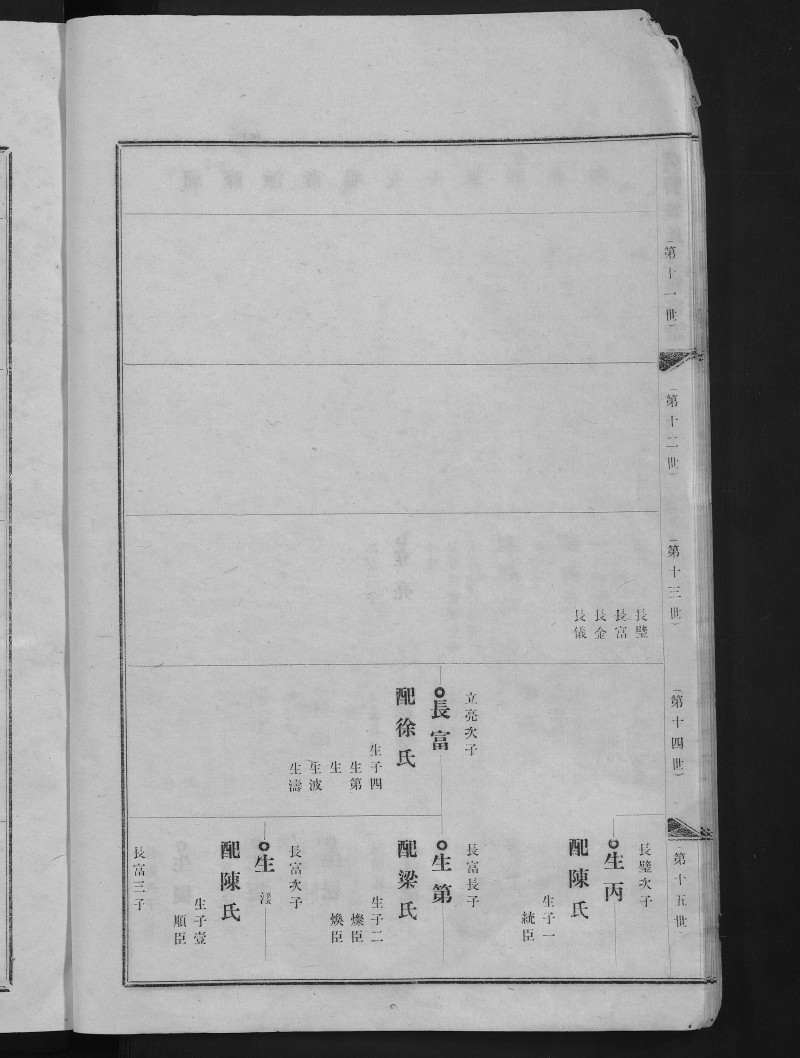 (第十一世)
(第十二世)
(第十三世)
(第十四世)
(第十五世)
長璧
長富
長金
長儀
立亮次子
長富
配徐氏
生子四
生第
生
生波
生濤
長璧次子
生丙
配陳氏
生子一
統臣
長富長子
生第
配梁氏
生子二
燦臣
煥臣
長富次子
生
配陳氏
生子壹
順臣
長富三子